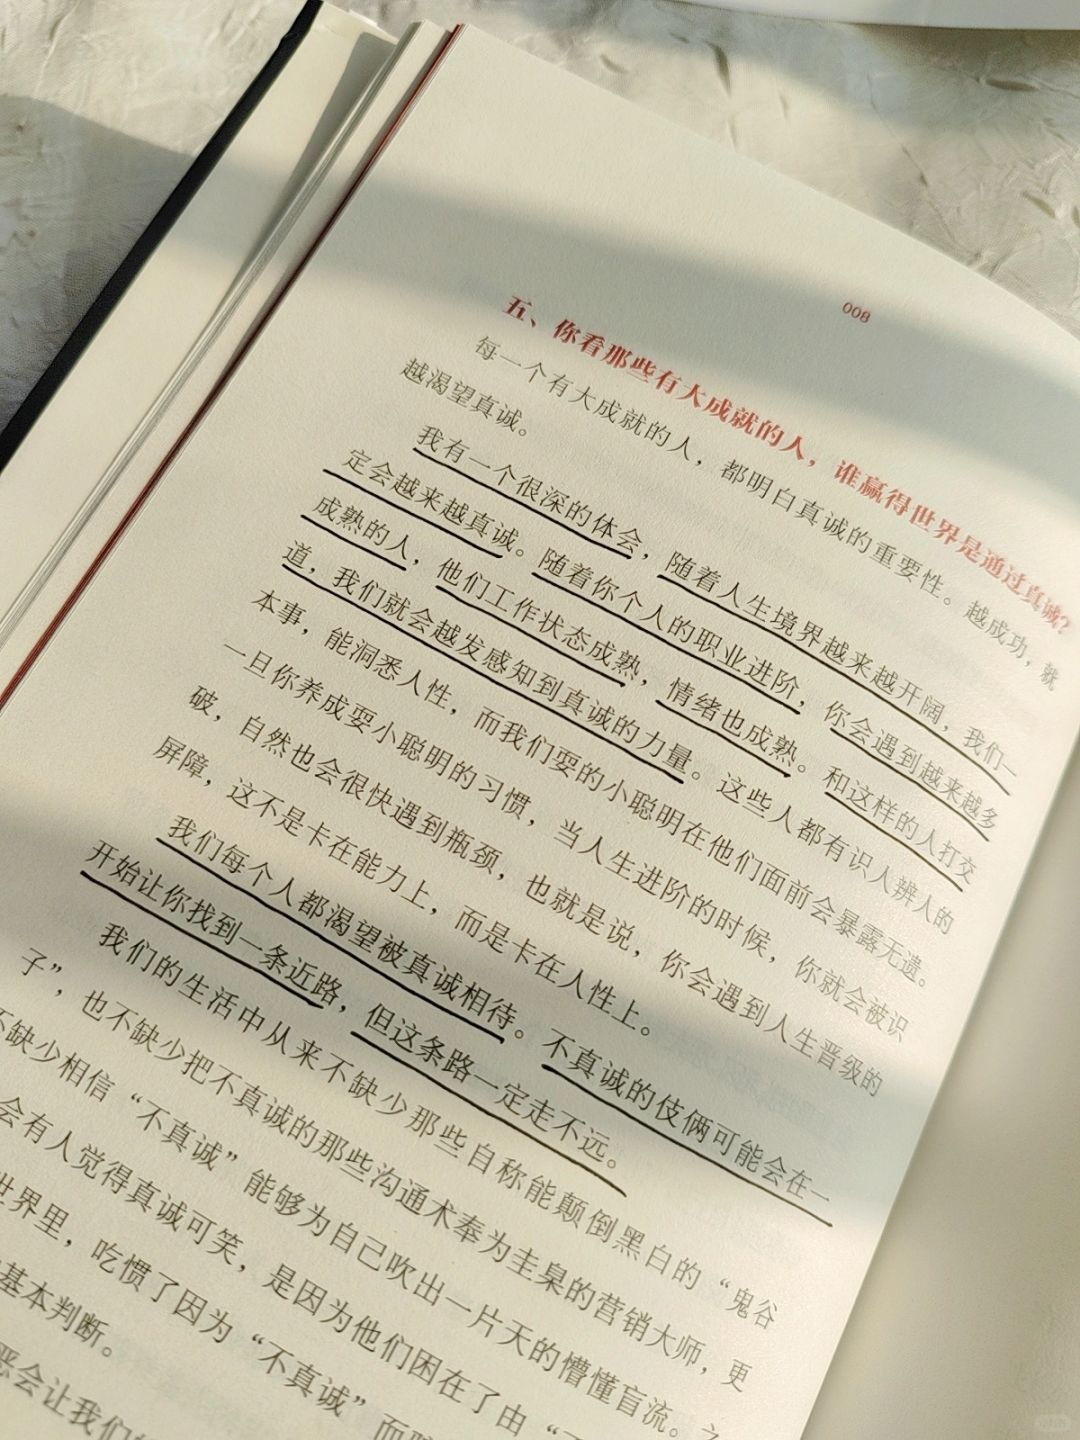 008
五、你看那些有大成就的人，谁赢得世界是通过真诚？
每一个有大成就的人，都明白真诚的重要性。越成功，就
越渴望真诚。
我有一个很深的体会，随着人生境界越来越开阔，我们一
定会越来越真诚。随着你个人的职业进阶，你会遇到越来越多
成熟的人，他们工作状态成熟，情绪也成熟。和这样的人打交
道，我们就会越发感知到真诚的力量。这些人都有识人辨人的
本事，能洞悉人性，而我们耍的小聪明在他们面前会暴露无遗。
一旦你养成耍小聪明的习惯，当人生进阶的时候，你就会被识
破，自然也会很快遇到瓶颈，也就是说，你会遇到人生晋级的
屏障，这不是卡在能力上，而是卡在人性上。
我们每个人都渴望被真诚相待。不真诚的伎俩可能会在一
开始让你找到一条近路，但这条路一定走不远。
我们的生活中从来不缺少那些自称能颠倒黑白的“鬼谷
子”，也不缺少把不真诚的那些沟通术奉为圭臬的营销大师，更
不缺少相信“不真诚”能够为自己吹出一片天的懵懂盲流。之
会有人觉得真诚可笑，是因为他们困在了由“
世界里，吃惯了因为“不真诚”而
基本判断。
恶会让我们